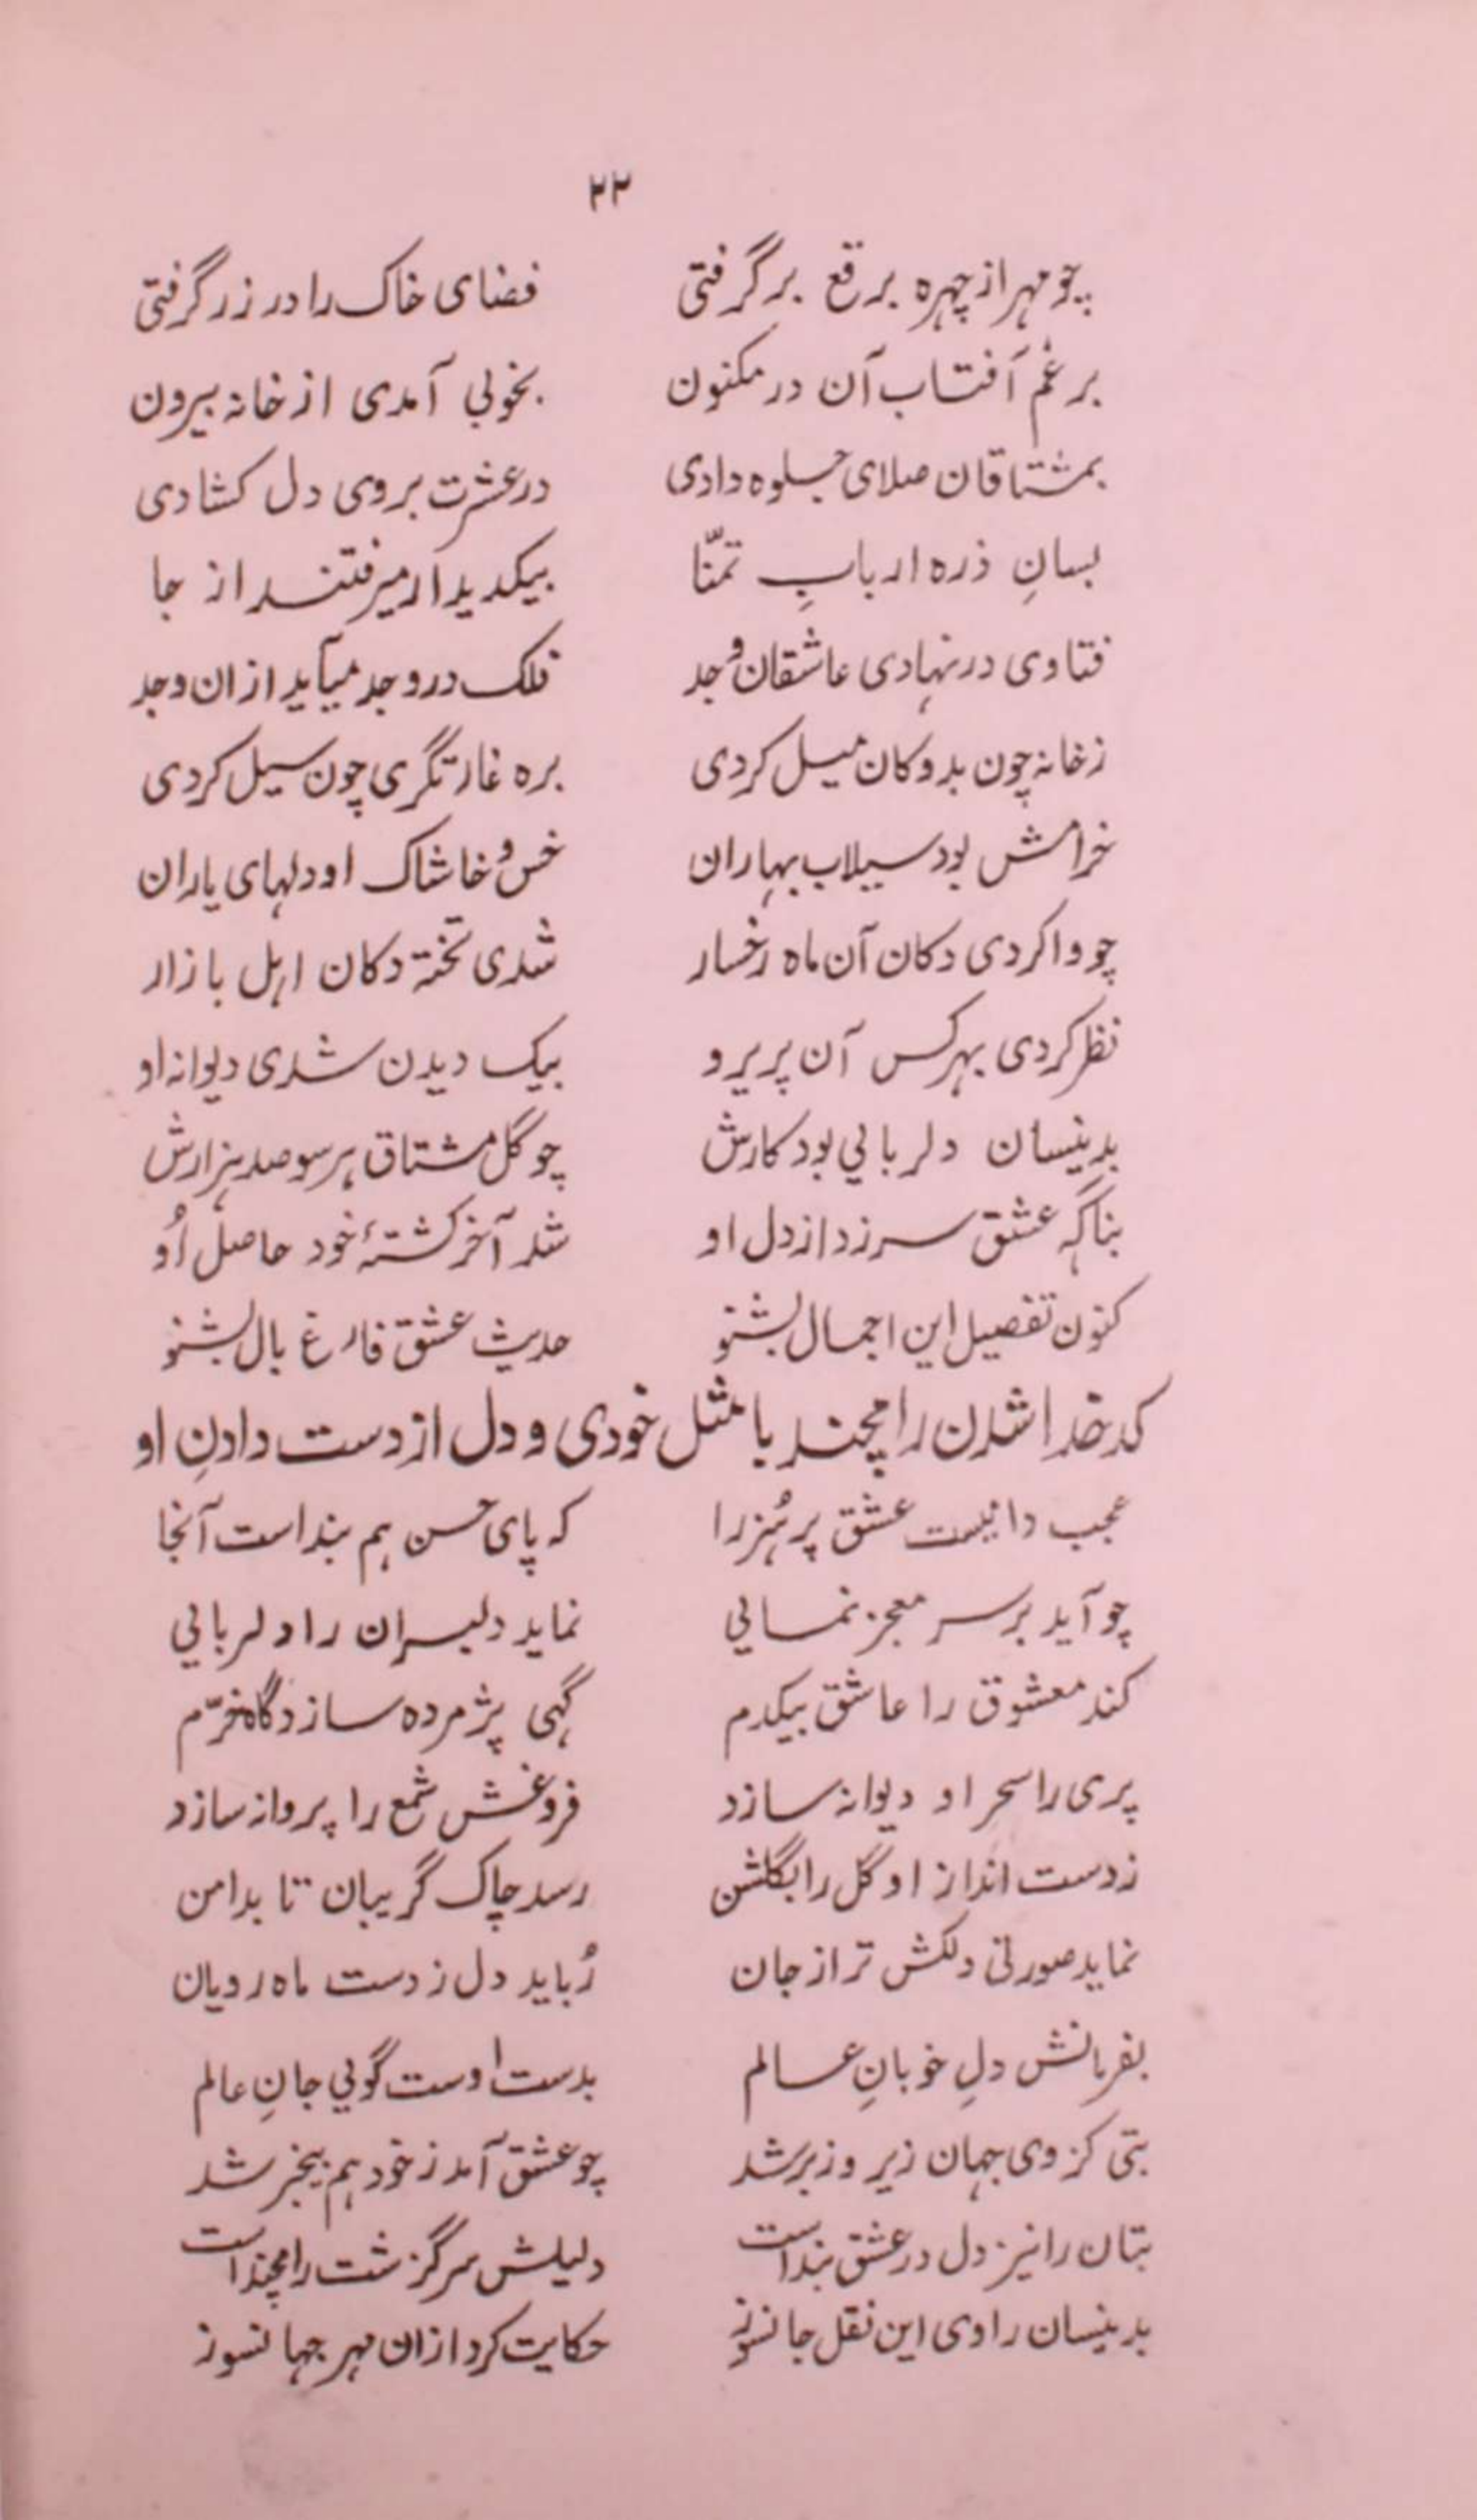 ۲۲
چو مهر از چهره برقع برگرفتی فضای خاک را در زر گرفتی
برغم آفتاب آن در مکنون بخوبی آمدی از خانه بیرون
بمشتاقان صلای جلوه دادی در عشرت بروی دل کشادی
بسانِ ذره اربابِ تمنّا بیکدیدار میرفتند از جا
فتاوی در نهادی عاشقان وجد فلک در وجد میآید ازان وجد
ز خانه چون بدوکان میل کردی بره غارتگری چون سیل کردی
خرامش بود سیلاب بهاران خس و خاشاک او دلهای یاران
چو وا کردی دکان آن ماه رخسار شدی تخته دکان اهل بازار
نظر کردی بهر کس آن پریرو بیک دیدن شدی دیوانه او
بدینسان دلربایی بود کارش چو گل مشتاق هر سو صد هزارش
بناگه عشق سر زد از دل او شد آخر کشتهٔ خود حاصل اُو
کنون تفصیل این اجمال بشنو حدیث عشق فارغ بال بشنو
کدخدا شدن رامچند با مثل خودی و دل از دست دادنِ او
عجب دانیست عشق پر هُنر را که پای حسن هم بند است آنجا
چو آید بر سر معجز نمایی نماید دلبران را دلربایی
کند معشوق را عاشق بیکدم گهی پژمرده سازد گاه خرّم
پری را سحر او دیوانه سازد فروغش شمع را پروانه سازد
ز دست انداز او گل را بگلشن رسد چاک گریبان تا بدامن
نماید صورتی دلکش تر از جان رُباید دل ز دست ماه رویان
بفرمانش دلِ خوبانِ عالم بدست اوست گویی جانِ عالم
بتی کز وی جهان زیر و زبر شد چو عشق آمد ز خود هم بیخبر شد
بتان را نیز دل در عشق بند است دلیلش سرگزشت رامچند است
بدینسان راوی این نقل جانسوز حکایت کرد ازان مهر جهانسوز